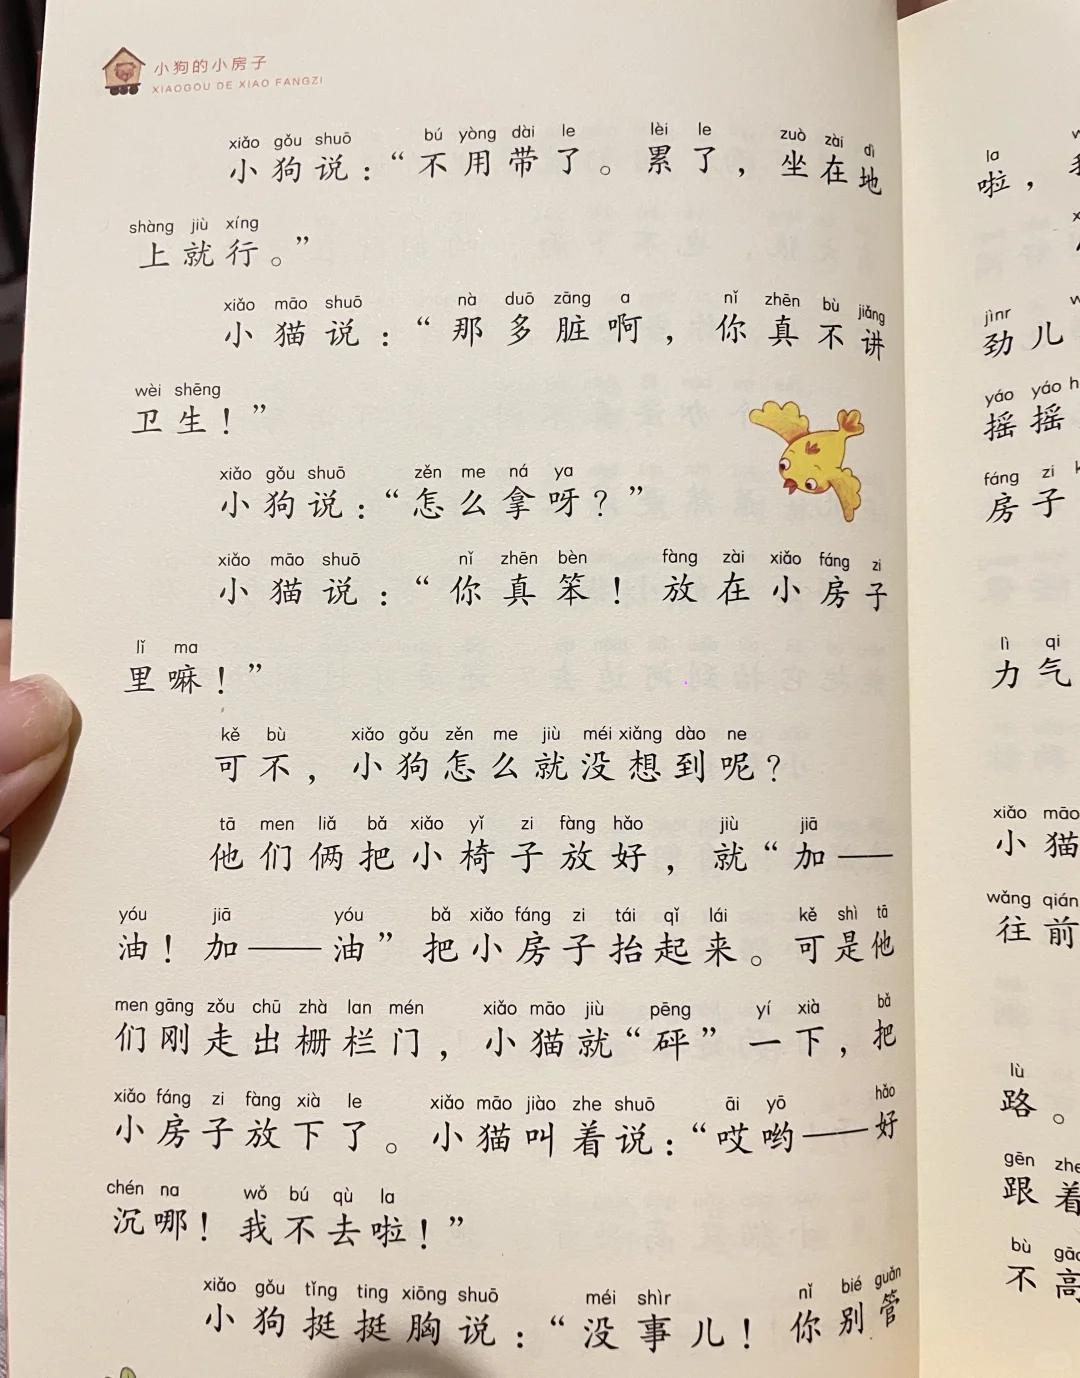 小狗的小房子
XIAOGOU DE XIAO FANGZI
xiǎo gǒu shuō bú yòng dài le lèi le zuò zài dì
小狗说：“不用带了。累了，坐在地
shàng jiù xíng
上就行。”
xiǎo māo shuō nà duō zāng a nǐ zhēn bù jiǎng
小猫说：“那多脏啊，你真不讲
wèi shēng
卫生！”
xiǎo gǒu shuō zěn me ná ya
小狗说：“怎么拿呀？”
xiǎo māo shuō nǐ zhēn bèn fàng zài xiǎo fáng zi
小猫说：“你真笨！放在小房子
lǐ ma
里嘛！”
kě bù xiǎo gǒu zěn me jiù méi xiǎng dào ne
可不，小狗怎么就没想到呢？
tā men liǎ bǎ xiǎo yǐ zi fàng hǎo jiù jiā
他们俩把小椅子放好，就“加——
yóu jiā yóu bǎ xiǎo fáng zi tái qǐ lái kě shì tā
油！加——油”把小房子抬起来。可是他
men gāng zǒu chū zhà lan mén xiǎo māo jiù pēng yí xià bǎ
们刚走出栅栏门，小猫就“砰”一下，把
xiǎo fáng zi fàng xià le xiǎo māo jiào zhe shuō āi yō hǎo
小房子放下了。小猫叫着说：“哎哟——好
chén na wǒ bú qù la
沉哪！我不去啦！”
xiǎo gǒu tǐng ting xiōng shuō méi shìr nǐ bié guǎn
小狗挺挺胸说：“没事儿！你别管
la
啦，
jìnr
劲儿
yáo yáo
摇摇
fáng zi
房子
lì qi
力气
xiǎo māo
小猫
wǎng qián
往前
lù
路。
gēn zhe
跟着
bù
不高